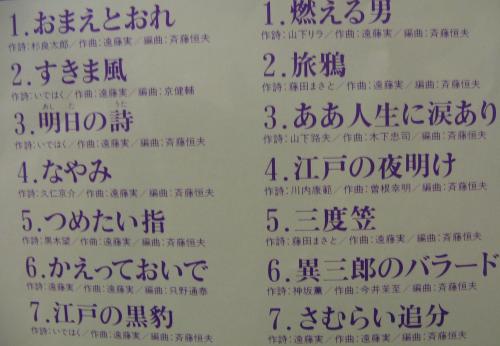 1.おまえとおれ
作詩:杉良太郎/作曲:遠藤実/編曲:斉藤恒夫
2.すきま風
作詩:いではく/作曲:遠藤実/編曲:京健輔
あした うた
3.明日の詩
作詩:いではく/作曲:遠藤実/編曲:斉藤恒夫
4.なやみ
作詩:久仁京介/作曲:遠藤実/編曲:斉藤恒夫
5.つめたい指
作詩:黒木望/作曲:遠藤実/編曲:斉藤恒夫
6.かえっておいで
作詩:いではく/作曲:遠藤実/編曲:只野通泰
7.江戸の黒豹
作詩:いではく/作曲:遠藤実/編曲:斉藤恒夫
1.燃える男
作詩:山下リラ/作曲:遠藤実/編曲:斉藤恒夫
2.旅鴉
作詩:藤田まさと/作曲:遠藤実/編曲:斉藤恒夫
3.ああ人生に涙あり
作詩:山上路夫/作曲:木下忠司/編曲:斉藤恒夫
4.江戸の夜明け
作詩:川内康範/作曲:曽根幸明/編曲:斉藤恒夫
5.三度笠
作詩:藤田まさと/作曲:遠藤実/編曲:斉藤恒夫
6.異三郎のバラード
作詩:神坂薫/作曲:今井茉至/編曲:斉藤恒夫
7.さむらい追分
作詩:いではく/作曲:遠藤実/編曲:斉藤恒夫